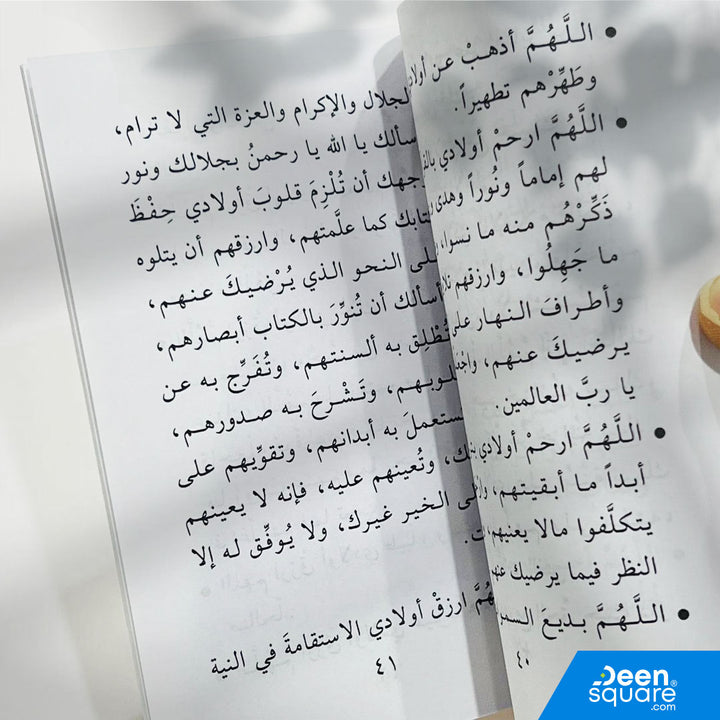 اللَّهُمَّ أذهبْ عن
وطَهِّرْهم تطهيراً.
اللَّهُمَّ ارحمْ أولادي
لهم إماماً ونُوراً وهدى
ذَكِّرْهُم منه ما نسوا،
ما جَهِلُوا، وارزقهم
وأطرافَ النهار على
يرضيكَ عنهم،
يا ربَّ العالمين.
اللَّهُمَّ ارحمْ أولادي
أبداً ما أبقيتهم،
يتكلَّفوا مالا يعنيهم
النظر فيما يرضيك
اللَّهُمَّ بديعَ
٤٠
الجلال والإكرام والعزة التي لا ترام،
أسألك يا الله يا رحمنُ بجلالك ونور
وجهك أن تُلْزِمَ قلوبَ أولادي حِفْظَ
كتابك كما علَّمتهم، وارزقهم أن يتلوه
على النحو الذي يُرْضيكَ عنهم،
أسألك أن تُنوِّرَ بالكتاب أبصارهم،
تُطْلِق به ألسنتهم، وتُفَرِّج به عن
قلوبهم، وتَشْرحَ به صدورهم،
تستعملَ به أبدانهم، وتقوِّيهم على
وتُعينهم عليه، فإنه لا يعينهم
على الخير غيرك، ولا يُوفِّق له إلا
ارزقْ أولادي الاستقامةَ في النية
٤١
Deen
square®
.com